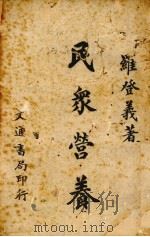 羅登義著
民衆營養
文通書局印行